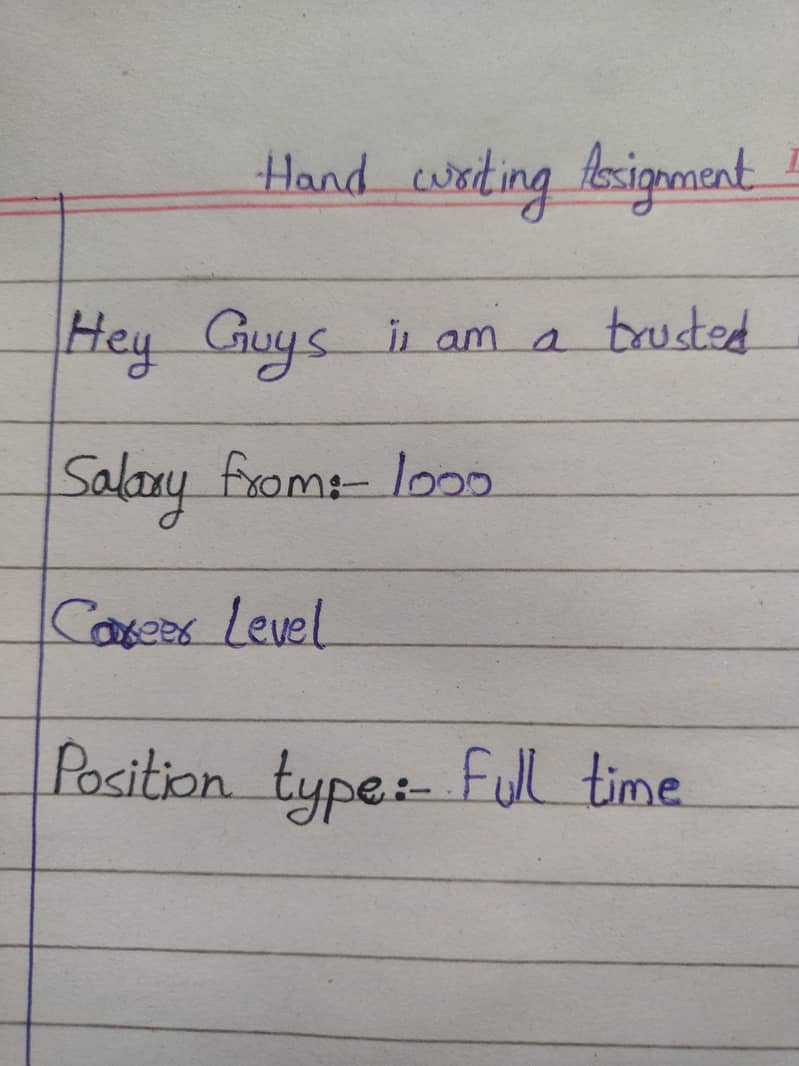 Hand writing Assignment
Hey Guys is am a trusted
Salary from:- 1000
Career Level
Position type:- Full time